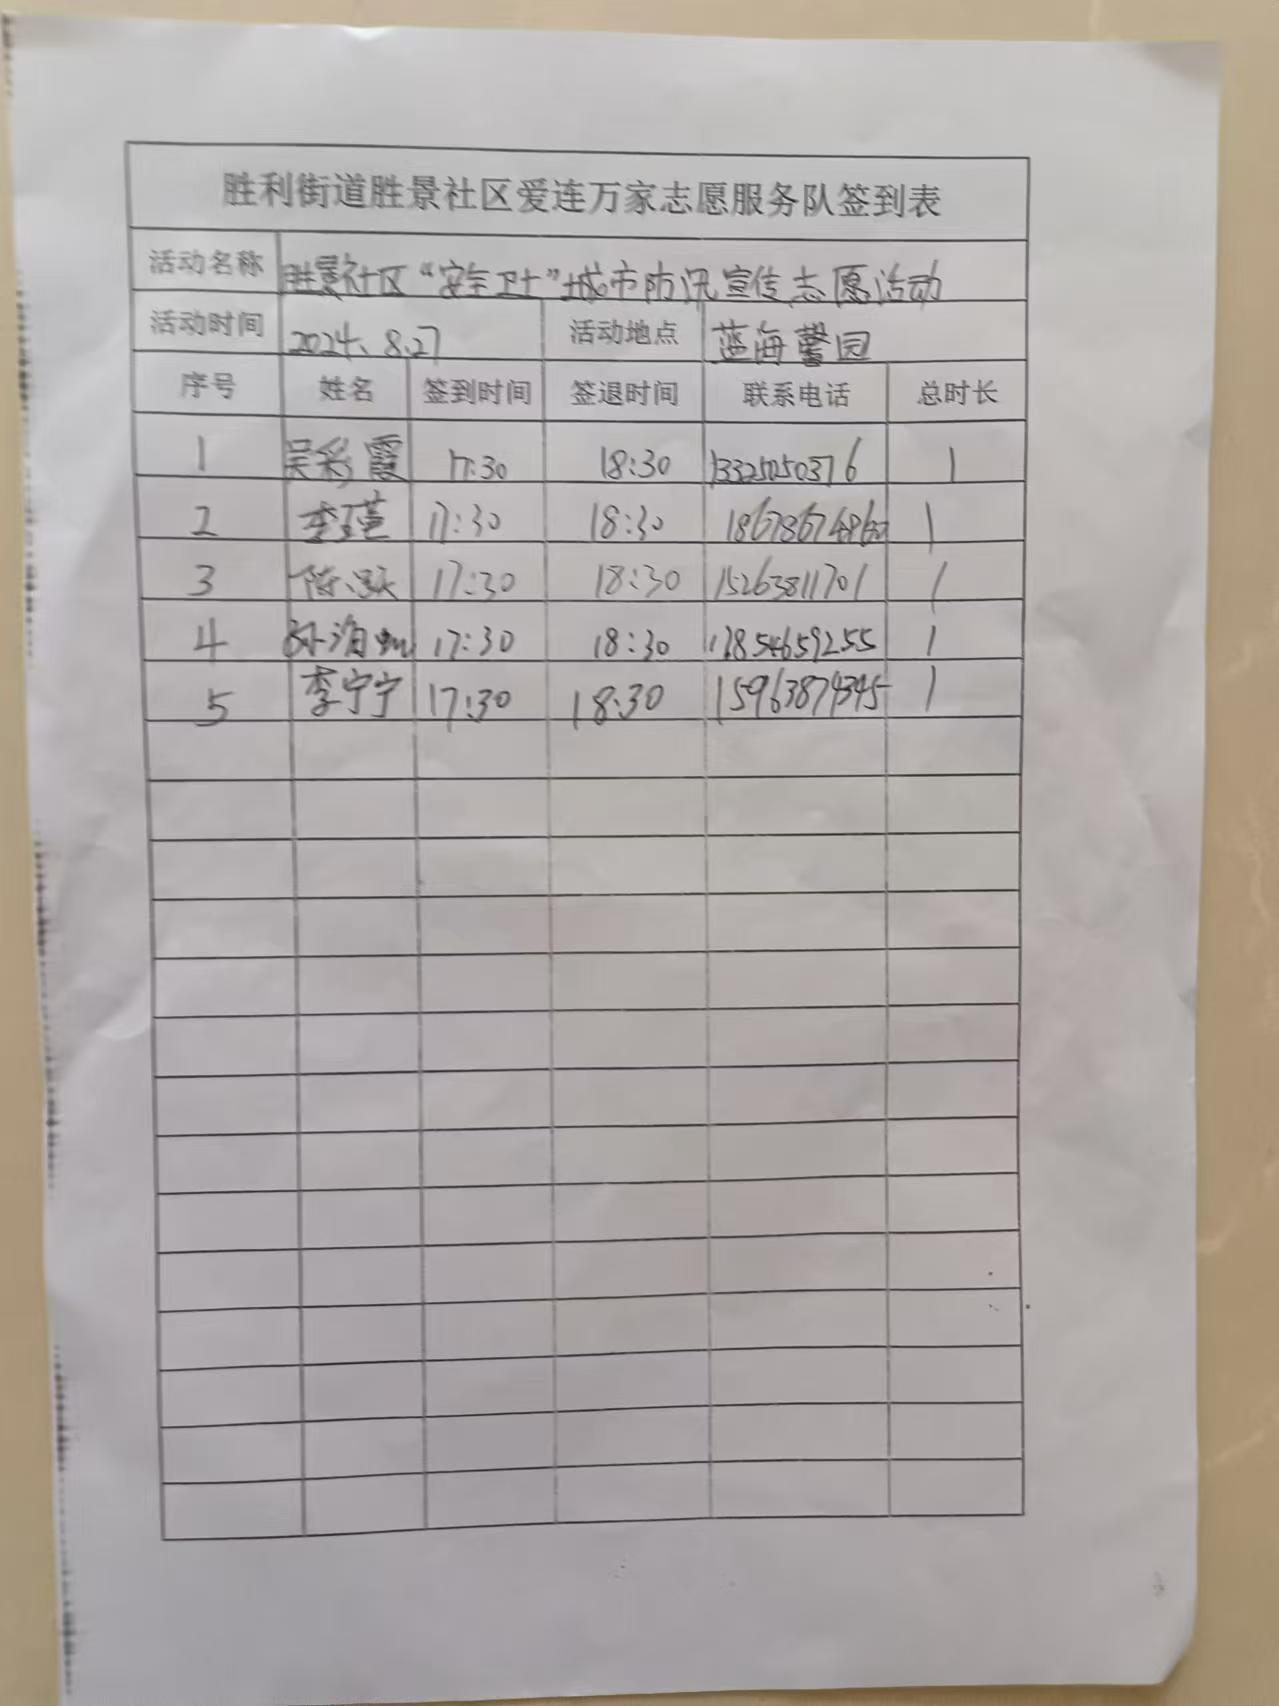 胜利街道胜景社区爱连万家志愿服务队签到表
活动名称 胜景社区“安全卫士”城市防汛宣传志愿活动
活动时间 2024、8.27 活动地点 蓝海馨园
序号 姓名 签到时间 签退时间 联系电话 总时长
1 吴彩霞 17:30 18:30 13325050376 1
2 李瑾 17:30 18:30 1
3 陈 17:30 18:30 15263811701 1
4 孙海 17:30 18:30 17854659255 1
5 李宁宁 17:30 18:30 15963874345 1